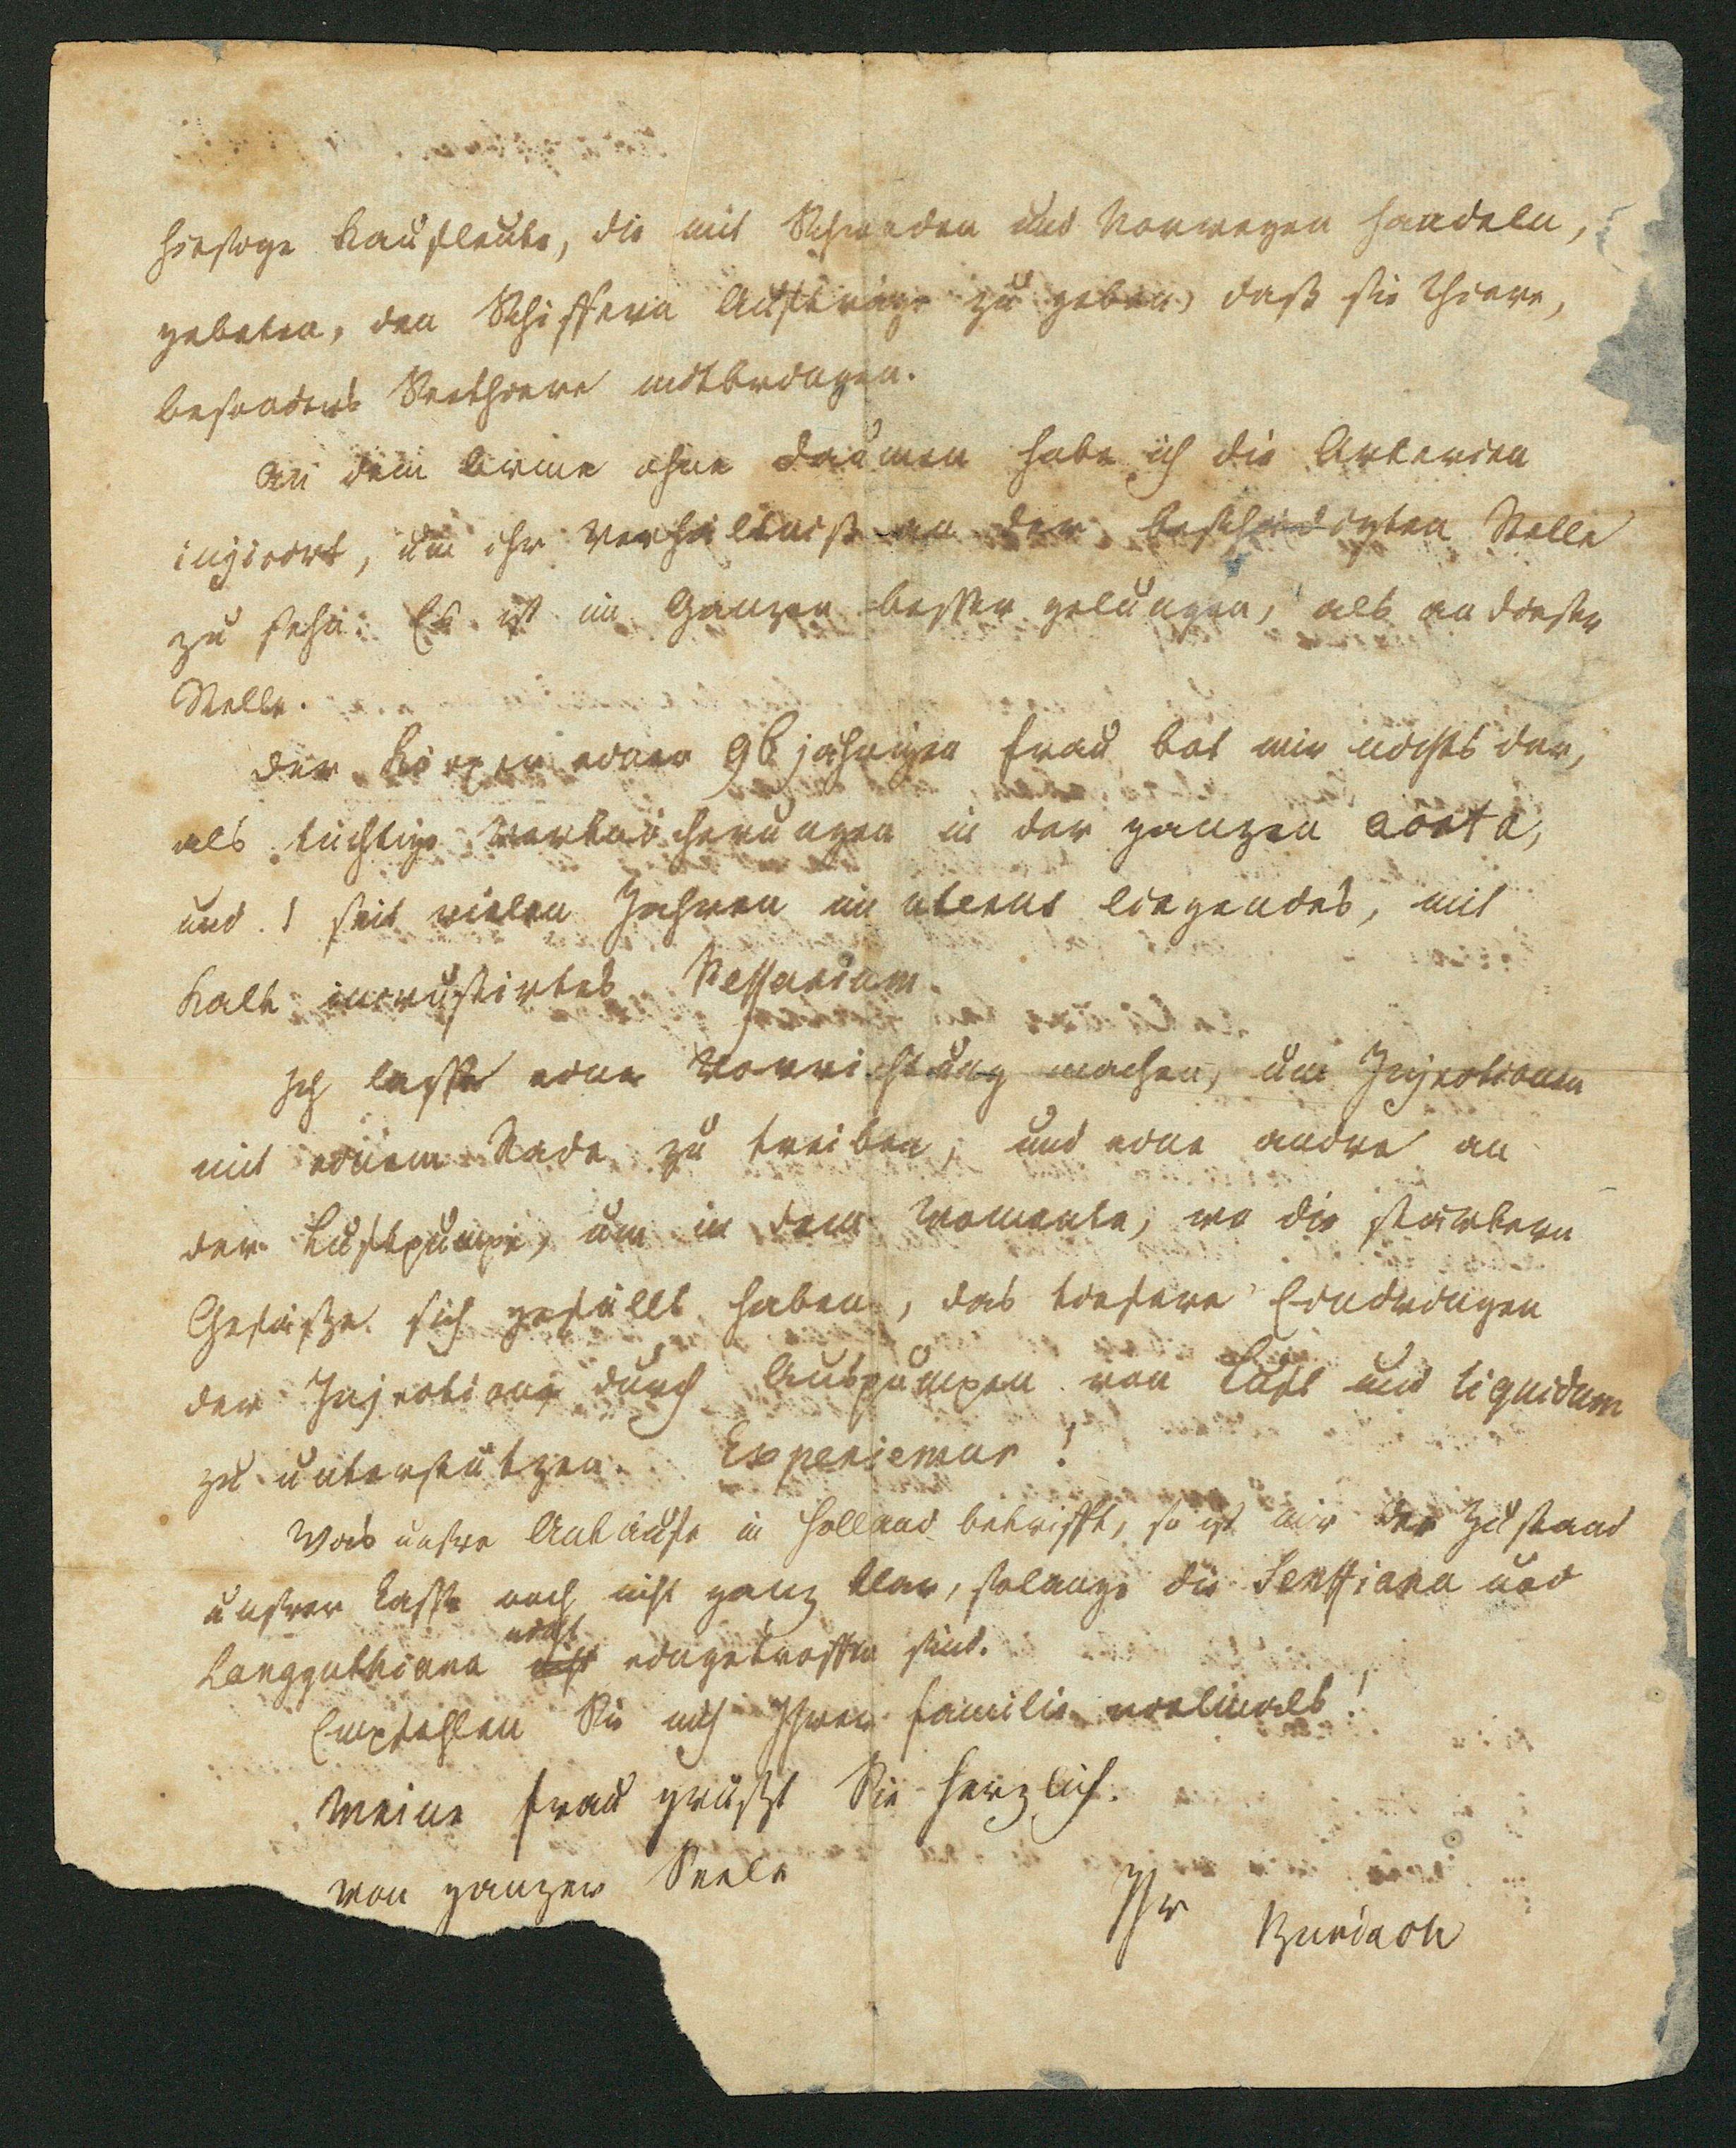 hiesige Kaufleute, die mit Schweden und Norwegen handeln,
gebeten, den Schiffern Aufträge zu geben, daß sie Thiere,
besonders Seethiere mitbringen.
An dem Arme ohne Daumen habe ich die Arterien
injicirt, um ihr Verhältniß an der beschädigten Stelle
zu sehn. Es ist im Ganzen besser gelungen, als an dieser
Stelle.
Der Körper einer 96jährigen Frau bot mir nichts dar,
als tüchtige Verknöcherungen in der ganzen aorta,
und 1 seit vielen Jahren im uterus liegendes, mit
Kalk incrustirtes Pessarium.
Ich lasse eine Vorrichtung machen, um Injectionen
mit einem Rade zu treiben, und eine andre an
der Luftpumpe, um in dem Momente, wo die stärkern
Gefäße sich gefüllt haben, das tiefere Eindringen
der Injection durch Auspumpen von Luft und liquidum
zu unterstützen. Experiemur!
Was unsre Ankäufe in Holland betrifft, so ist mir der Zustand
unsrer Casse noch nicht ganz klar, solange die Senffiana und
Langguthiana nicht eingetroffen sind.
Empfehlen Sie mich Ihrer Familie vielmals!
Meine Frau grüßt Sie herzlich.
Von ganzer Seele
Ihr Burdach